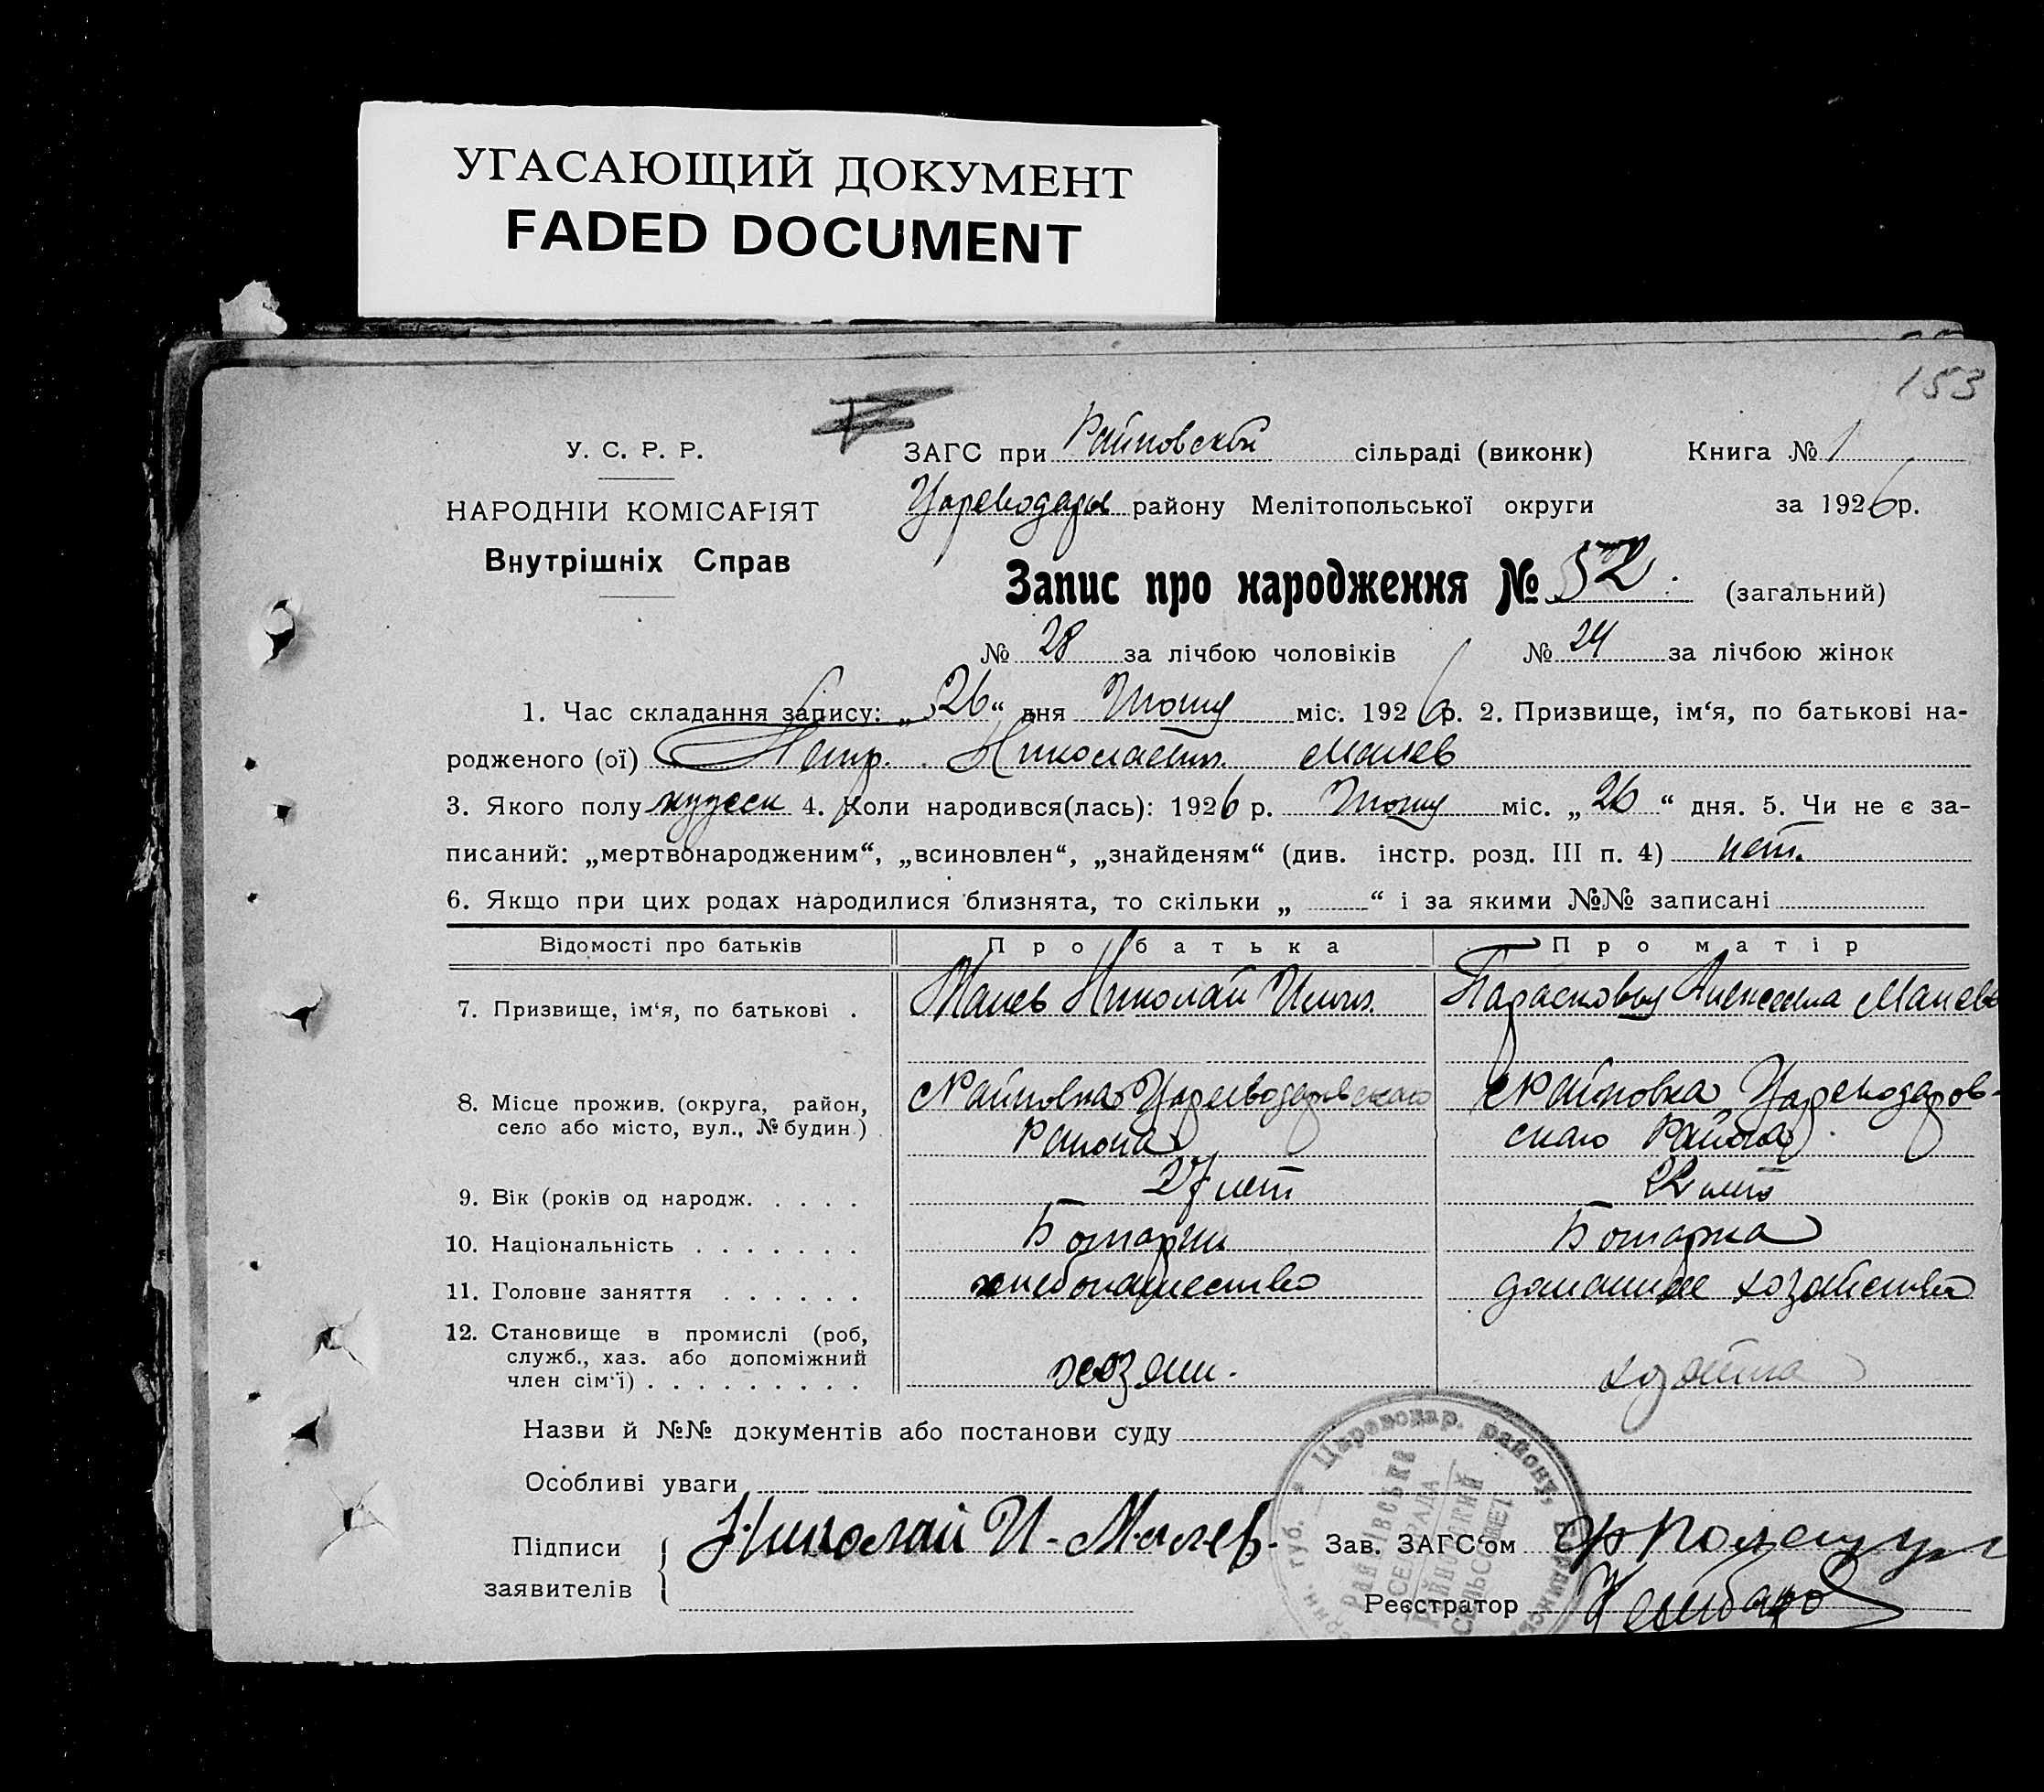 УГАСАЮЩИЙ ДОКУМЕНТ
FADED DOCUMENT
153
У. С. Р. Р.
НАРОДНІЙ КОМІСАРІЯТ
Внутрішніх Справ
ЗАГС при Райновской сільраді (виконк) Книга № 1
Цареводаров району Мелітопольської округи за 1926 р.
Запис про народження № 52. (загальний)
№ 28 за лічбою чоловіків № 24 за лічбою жінок
1. Час складання запису: „26“ дня міс. 1926 р. 2. Призвище, ім‘я, по батькові на-
родженого (ої) Петр. Николаевич. Малев
3. Якого полу мужеск 4. Коли народився(лась): 1926 р. міс. „26“ дня. 5. Чи не є за-
писаний: „мертвонародженим“, „всиновлен“, „знайденям“ (див. інстр. розд. III п. 4) нет.
6. Якщо при цих родах народилися близнята, то скільки „ “ і за якими №№ записані
Відомості про батьків Про батька Про матір
7. Призвище, ім‘я, по батькові . Малев Николай Ильич. Парасковья Алексеевна Малева
8. Місце прожив. (округа, район, село або місто, вул., № будин.) с Райновка Цареводаровскаго Района с Райновка Цареводаров-
скаго Района.
9. Вік (років од народж. . . . . 27 лет 22 лет
10. Національність . . . . . . . Болгарин Болгарка
11. Головне заняття . . . . . . хлебопашество домашнее хозяйство
12. Становище в промислі (роб, служб., хаз. або допоміжний член сім‘ї) . . . . . . . . . хозяин. хозяйка
Назви й №№ документів або постанови суду
Особливі уваги
Підписи заявителів { Николай И. Малев. Зав. ЗАГС‘ом
Реєстратор
Цареводар. району,
РАЙНІВСЬКА
СЕЛЬСОВЕТ